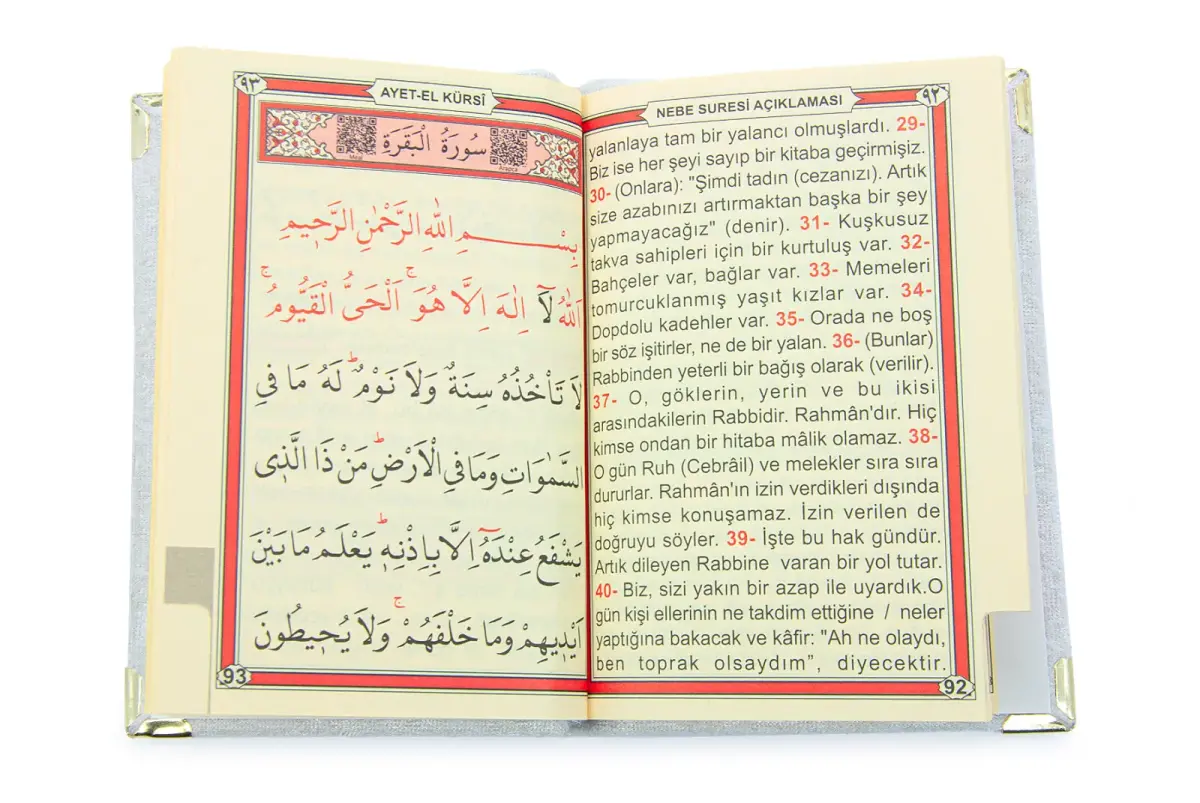 NEBE SURESİ AÇIKLAMASI
٩٢
yalanlaya tam bir yalancı olmuşlardı. 29-
Biz ise her şeyi sayıp bir kitaba geçirmişiz.
30- (Onlara): "Şimdi tadın (cezanızı). Artık
size azabınızı artırmaktan başka bir şey
yapmayacağız" (denir). 31- Kuşkusuz
takva sahipleri için bir kurtuluş var. 32-
Bahçeler var, bağlar var. 33- Memeleri
tomurcuklanmış yaşıt kızlar var. 34-
Dopdolu kadehler var. 35- Orada ne boş
bir söz işitirler, ne de bir yalan. 36- (Bunlar)
Rabbinden yeterli bir bağış olarak (verilir).
37- O, göklerin, yerin ve bu ikisi
arasındakilerin Rabbidir. Rahmân'dır. Hiç
kimse ondan bir hitaba mâlik olamaz. 38-
O gün Ruh (Cebrâil) ve melekler sıra sıra
dururlar. Rahmân'ın izin verdikleri dışında
hiç kimse konuşamaz. İzin verilen de
doğruyu söyler. 39- İşte bu hak gündür.
Artık dileyen Rabbine varan bir yol tutar.
40- Biz, sizi yakın bir azap ile uyardık.O
gün kişi ellerinin ne takdim ettiğine / neler
yaptığına bakacak ve kâfir: "Ah ne olaydı,
ben toprak olsaydım”, diyecektir.
92
٩٣
AYET-EL KÜRSÎ
سُورَةُ الْبَقَرَةِ
Meal
Arapça
بِسْمِ اللهِ الرَّحْمٰنِ الرَّحِيمِ
اَللهُ لَآ اِلٰهَ اِلَّا هُوَۚ اَلْحَىُّ الْقَيُّومُۚ
لَا تَأْخُذُهُ سِنَةٌ وَلَا نَوْمٌؕ لَهُ مَا فِى
السَّمٰوَاتِ وَمَا فِى الْاَرْضِؕ مَنْ ذَا الَّذِى
يَشْفَعُ عِنْدَهُٓ اِلَّا بِاِذْنِهٖؕ يَعْلَمُ مَا بَيْنَ
اَيْدِيهِمْ وَمَا خَلْفَهُمْۚ وَلَا يُحِيطُونَ
93